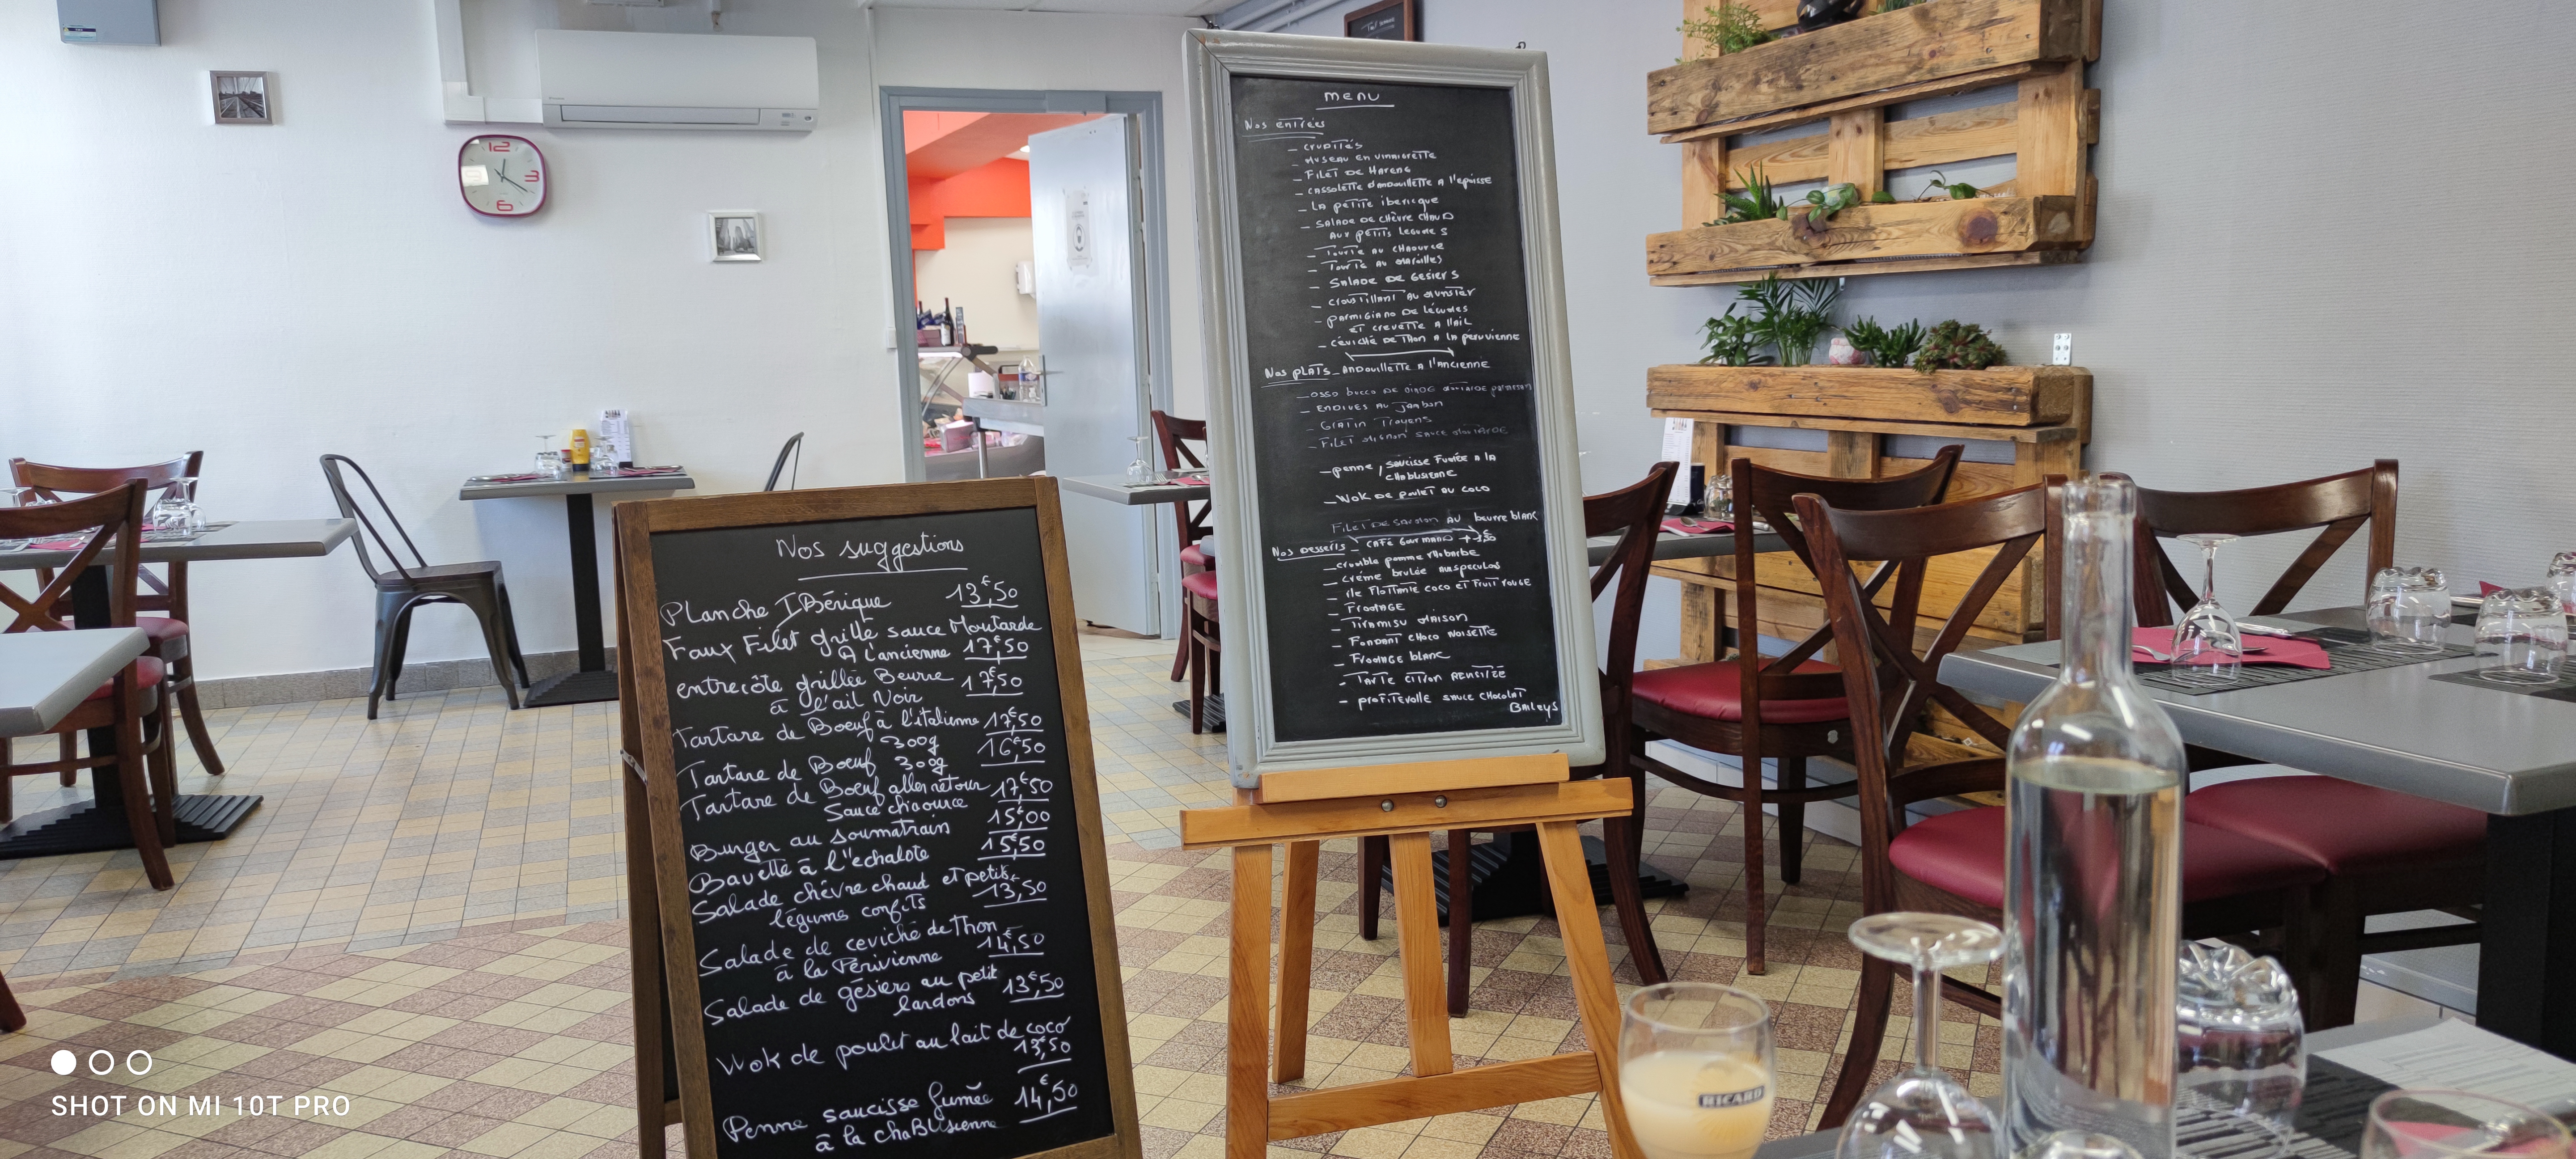 12
3
6
MENU
Nos entrées
- CRUDITÉS
- MUSEAU EN VINAIGRETTE
- FILET DE HARENG
- CASSOLETTE D'ANDOUILLETTE A l'epoisse
- LA petite ibericque
- SALADE DE CHÈVRE CHAUD
AUX petits legumes
- TOURTE AU CHAOURCE
- TOURTE AU MAROILLES
- SALADE DE GESIERS
- croustillant AU munster
- parmigiano DE Légumes
ET crevette A l'Ail
- CÉVICHÉ DE THON A LA peruvienne
Nos PLATS - ANDOUILLETTE A l'ANCIENNE
- OSSO bucco DE DINDE
- ENDIVES AU JAMBON
- GRATIN Troyens
- FILET MIGNON SAUCE
- penne, saucisse Fumée A la
CHABLISIENNE
- WOK DE poulet AU COCO
FILET DE AU beurre blanc
Nos Desserts - CAFÉ Gourmand + 3,50
- crumble pomme rhubarbe
- Créme brulée speculos
- île Flottante coco ET Fruit rouge
- Fromage
- Tiramisu maison
- FONDANT CHOCO NOISETTE
- Fromage blanc
- TARTE CITRON
- profiterolle sauce CHOCOLAT
BAileys
Nos suggestions
Planche IBérique 13€,50
Faux Filet grillé sauce Moutarde
A l'ancienne 17€,50
entrecôte grillée Beurre
à l'ail Noir 17€,50
Tartare de Boeuf à l'italienne 17€,50
300g
Tartare de Boeuf 300g 16€,50
Tartare de Boeuf aller retour 17€,50
Sauce chaource
Burger au soumatrain 15€,00
Bavette à l''echalote 15€,50
Salade chèvre chaud et petits
légumes confits 13€,50
Salade de ceviché de Thon
à la Périvienne 14€,50
Salade de gésiers au petit
lardons 13€,50
Wok de poulet au lait de coco
13€,50
Penne saucisse fumée 14€,50
à la chaBlisienne
RICARD
SHOT ON MI 10T PRO